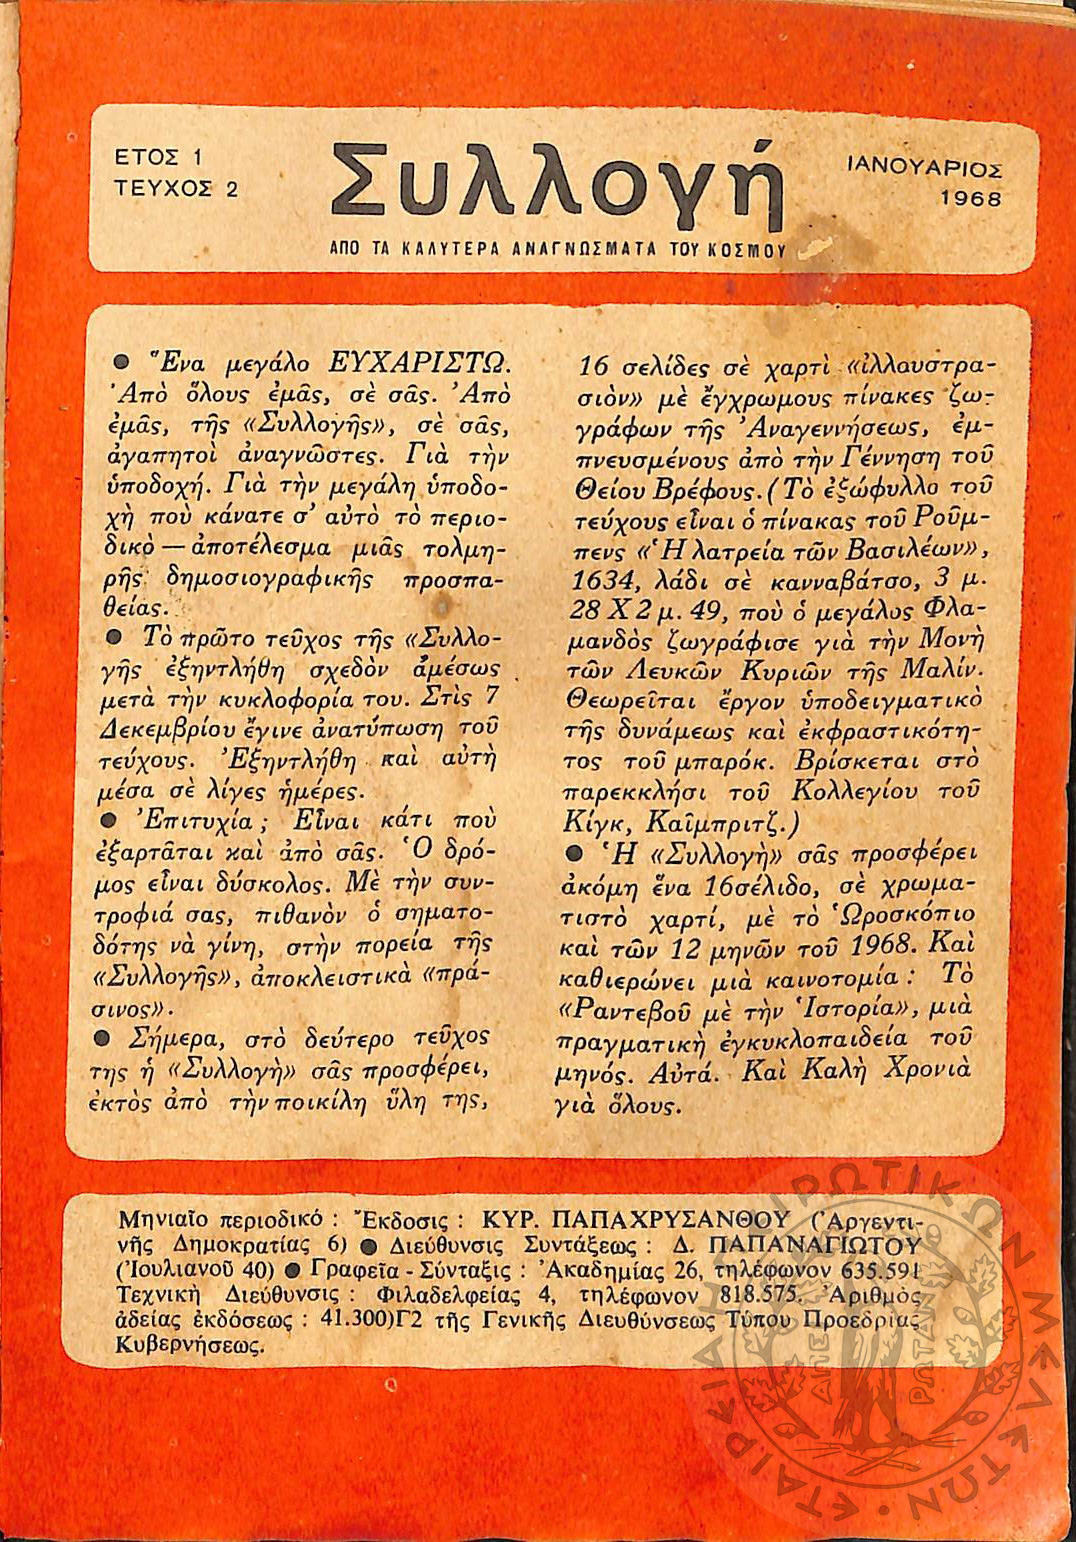 ΕΤΟΣ 1
ΤΕΥΧΟΣ 2
Συλλογή
ΙΑΝΟΥΑΡΙΟΣ
1968
ΑΠΟ ΤΑ ΚΑΛΥΤΕΡΑ ΑΝΑΓΝΩΣΜΑΤΑ ΤΟΥ ΚΟΣΜΟΥ
● Ἕνα μεγάλο ΕΥΧΑΡΙΣΤΩ.
Ἀπὸ ὅλους ἐμᾶς, σὲ σᾶς. Ἀπὸ
ἐμᾶς, τῆς «Συλλογῆς», σὲ σᾶς,
ἀγαπητοὶ ἀναγνῶστες. Γιὰ τὴν
ὑποδοχή. Γιὰ τὴν μεγάλη ὑποδο-
χὴ ποὺ κάνατε σ' αὐτὸ τὸ περιο-
δικὸ — ἀποτέλεσμα μιᾶς τολμη-
ρῆς δημοσιογραφικῆς προσπα-
θείας.
● Τὸ πρῶτο τεῦχος τῆς «Συλλο-
γῆς ἐξηντλήθη σχεδὸν ἀμέσως
μετὰ τὴν κυκλοφορία του. Στὶς 7
Δεκεμβρίου ἔγινε ἀνατύπωση τοῦ
τεύχους. Ἐξηντλήθη καὶ αὐτὴ
μέσα σὲ λίγες ἡμέρες.
● Ἐπιτυχία; Εἶναι κάτι ποὺ
ἐξαρτᾶται καὶ ἀπὸ σᾶς. Ὁ δρό-
μος εἶναι δύσκολος. Μὲ τὴν συν-
τροφιά σας, πιθανὸν ὁ σηματο-
δότης νὰ γίνη, στὴν πορεία τῆς
«Συλλογῆς», ἀποκλειστικὰ «πρά-
σινος».
● Σήμερα, στὸ δεύτερο τεῦχος
της ἡ «Συλλογὴ» σᾶς προσφέρει,
ἐκτὸς ἀπὸ τὴν ποικίλη ὕλη της,
16 σελίδες σὲ χαρτὶ «ἰλλουστρα-
σιὸν» μὲ ἔγχρωμους πίνακες ζω-
γράφων τῆς Ἀναγεννήσεως, ἐμ-
πνευσμένους ἀπὸ τὴν Γέννηση τοῦ
Θείου Βρέφους. (Τὸ ἐξώφυλλο τοῦ
τεύχους εἶναι ὁ πίνακας τοῦ Ροῦμ-
πενς «Ἡ λατρεία τῶν Βασιλέων»,
1634, λάδι σὲ κανναβάτσο, 3 μ.
28 Χ 2 μ. 49, ποὺ ὁ μεγάλος Φλα-
μανδὸς ζωγράφισε γιὰ τὴν Μονὴ
τῶν Λευκῶν Κυριῶν τῆς Μαλίν.
Θεωρεῖται ἔργον ὑποδειγματικὸ
τῆς δυνάμεως καὶ ἐκφραστικότη-
τος τοῦ μπαρόκ. Βρίσκεται στὸ
παρεκκλήσι τοῦ Κολλεγίου τοῦ
Κίγκ, Καῖμπριτζ.)
● Ἡ «Συλλογὴ» σᾶς προσφέρει
ἀκόμη ἕνα 16σέλιδο, σὲ χρωμα-
τιστὸ χαρτί, μὲ τὸ Ὡροσκόπιο
καὶ τῶν 12 μηνῶν τοῦ 1968. Καὶ
καθιερώνει μιὰ καινοτομία: Τὸ
«Ραντεβοῦ μὲ τὴν Ἱστορία», μιὰ
πραγματικὴ ἐγκυκλοπαιδεία τοῦ
μηνός. Αὐτά. Καὶ Καλὴ Χρονιὰ
γιὰ ὅλους.
Μηνιαῖο περιοδικό: Ἔκδοσις: ΚΥΡ. ΠΑΠΑΧΡΥΣΑΝΘΟΥ (Ἀργεντι-
νῆς Δημοκρατίας 6) ● Διεύθυνσις Συντάξεως: Δ. ΠΑΠΑΝΑΓΙΩΤΟΥ
(Ἰουλιανοῦ 40) ● Γραφεῖα - Σύνταξις: Ἀκαδημίας 26, τηλέφωνον 635.591
Τεχνικὴ Διεύθυνσις: Φιλαδελφείας 4, τηλέφωνον 818.575. Ἀριθμὸς
ἀδείας ἐκδόσεως: 41.300)Γ2 τῆς Γενικῆς Διευθύνσεως Τύπου Προεδρίας
Κυβερνήσεως.
ΕΤΑΙΡΕΙΑ ΗΠΕΙΡΩΤΙΚΩΝ ΜΕΛΕΤΩΝ
ΑΠΕΙ
ΡΩΤΑΝ